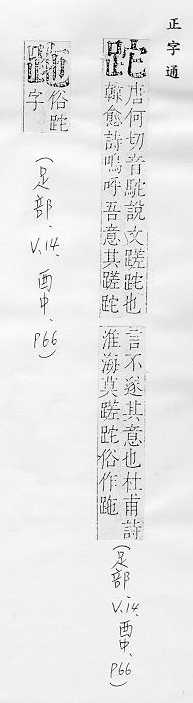 正字通
跎
唐何切音駝說文蹉跎也
韓愈詩嗚呼吾意其蹉跎
言不遂其意也杜甫詩
淮海莫蹉跎俗作
(足部、V.14、酉中、P66)
俗跎
字
(足部、V.14、酉中、P66)